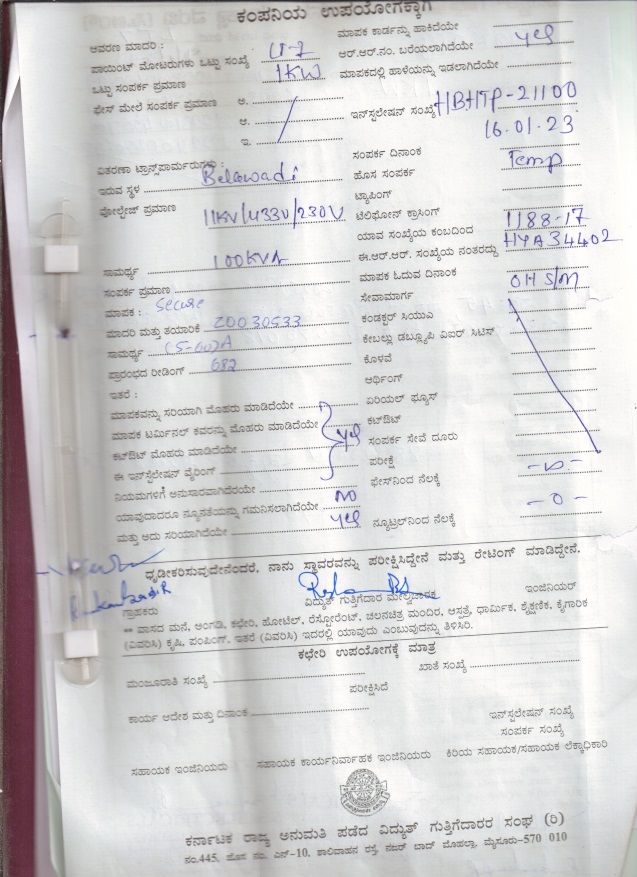 ಕಂಪನಿಯ ಉಪಯೋಗಕ್ಕಾಗಿ
ಆವರಣ ಮಾದರಿ :
ಪಾಯಿಂಟ್ ಮೋಟರುಗಳು ಒಟ್ಟು ಸಂಖ್ಯೆ
ಒಟ್ಟು ಸಂಪರ್ಕ ಪ್ರಮಾಣ 1KW
ಫೇಸ್ ಮೇಲೆ ಸಂಪರ್ಕ ಪ್ರಮಾಣ ಅ.
ಆ.
ಇ.
ವಿತರಣಾ ಟ್ರಾನ್ಸ್‌ಫಾರ್ಮರುಗಳು :
ಇರುವ ಸ್ಥಳ Belawadi
ವೋಲ್ಟೇಜ್ ಪ್ರಮಾಣ 11KV/433V/230V
ಸಾಮರ್ಥ್ಯ 100KVA
ಸಂಪರ್ಕ ಪ್ರಮಾಣ
ಮಾಪಕ : Secure
ಮಾದರಿ ಮತ್ತು ತಯಾರಿಕೆ 20030533
ಸಾಮರ್ಥ್ಯ (5-60)A
ಪ್ರಾರಂಭದ ರೀಡಿಂಗ್ 682
ಇತರೆ :
ಮಾಪಕವನ್ನು ಸರಿಯಾಗಿ ಮೊಹರು ಮಾಡಿದೆಯೇ
ಮಾಪಕ ಟರ್ಮಿನಲ್ ಕವರನ್ನು ಮೊಹರು ಮಾಡಿದೆಯೇ yes
ಕಟ್‌ಔಟ್ ಮೊಹರು ಮಾಡಿದೆಯೇ
ಈ ಇನ್‌ಸ್ಟಲೇಷನ್ ವೈರಿಂಗ್
ನಿಯಮಗಳಿಗೆ ಅನುಸಾರವಾಗಿದೆಯೇ
ಯಾವುದಾದರೂ ನ್ಯೂನತೆಯನ್ನು ಗಮನಿಸಲಾಗಿದೆಯೇ NO
ಮತ್ತು ಅದು ಸರಿಯಾಗಿದೆಯೇ yes
ಮಾಪಕ ಕಾರ್ಡನ್ನು ಹಾಕಿದೆಯೇ
ಆರ್.ಆರ್.ನಂ. ಬರೆಯಲಾಗಿದೆಯೇ yes
ಮಾಪಕದಲ್ಲಿ ಹಾಳೆಯನ್ನು ಇಡಲಾಗಿದೆಯೇ
ಇನ್‌ಸ್ಟಲೇಷನ್ ಸಂಖ್ಯೆ HBHTP-21100
16.01.23
ಸಂಪರ್ಕ ದಿನಾಂಕ
ಹೊಸ ಸಂಪರ್ಕ Temp
ಟ್ಯಾಪಿಂಗ್
ಟೆಲಿಫೋನ್ ಕ್ರಾಸಿಂಗ್
ಯಾವ ಸಂಖ್ಯೆಯ ಕಂಬದಿಂದ 1188-17
ಈ.ಆರ್.ಆರ್. ಸಂಖ್ಯೆಯ ನಂತರದ್ದು HYA34402
ಮಾಪಕ ಓದುವ ದಿನಾಂಕ
ಸೇವಾಮಾರ್ಗ OH S/M
ಕಂಡಕ್ಟರ್ ಸಿಯುಎ
ಕೇಬಲ್ಲು ಡಬ್ಲ್ಯೂಪಿ ವಿಐರ್ ಸಿಟಿಸ್
ಕೊಳವೆ
ಅರ್ಥಿಂಗ್
ಏರಿಯಲ್ ಫ್ಯೂಸ್
ಕಟ್‌ಔಟ್
ಸಂಪರ್ಕ ಸೇವೆ ದೂರು
ಪರೀಕ್ಷೆ
ಫೇಸ್‌ನಿಂದ ನೆಲಕ್ಕೆ
ನ್ಯೂಟ್ರಲ್‌ನಿಂದ ನೆಲಕ್ಕೆ -0-
ಧೃಡೀಕರಿಸುವುದೇನೆಂದರೆ, ನಾನು ಸ್ಥಾವರವನ್ನು ಪರೀಕ್ಷಿಸಿದ್ದೇನೆ ಮತ್ತು ರೇಟಿಂಗ್ ಮಾಡಿದ್ದೇನೆ.
ಗ್ರಾಹಕರು ವಿದ್ಯುತ್ ಗುತ್ತಿಗೆದಾರ ಮೇಲ್ವಿಚಾರಕ ಇಂಜಿನಿಯರ್
** ವಾಸದ ಮನೆ, ಅಂಗಡಿ, ಕಛೇರಿ, ಹೋಟೆಲ್, ರೆಸ್ಟೋರೆಂಟ್, ಚಲನಚಿತ್ರ ಮಂದಿರ, ಆಸ್ಪತ್ರೆ, ಧಾರ್ಮಿಕ, ಶೈಕ್ಷಣಿಕ, ಕೈಗಾರಿಕ
(ವಿವರಿಸಿ) ಕೃಷಿ, ಪಂಪಿಂಗ್, ಇತರೆ (ವಿವರಿಸಿ) ಇದರಲ್ಲಿ ಯಾವುದು ಎಂಬುವುದನ್ನು ತಿಳಿಸಿರಿ.
ಕಛೇರಿ ಉಪಯೋಗಕ್ಕೆ ಮಾತ್ರ
ಮಂಜೂರಾತಿ ಸಂಖ್ಯೆ ಖಾತೆ ಸಂಖ್ಯೆ
ಪರೀಕ್ಷಿಸಿದೆ
ಕಾರ್ಯ ಆದೇಶ ಮತ್ತು ದಿನಾಂಕ ಇನ್‌ಸ್ಟಲೇಷನ್ ಸಂಖ್ಯೆ
ಸಂಪರ್ಕ ಸಂಖ್ಯೆ
ಸಹಾಯಕ ಇಂಜಿನಿಯರು ಸಹಾಯಕ ಕಾರ್ಯನಿರ್ವಾಹಕ ಇಂಜಿನಿಯರು ಕಿರಿಯ ಸಹಾಯಕ/ಸಹಾಯಕ ಲೆಕ್ಕಾಧಿಕಾರಿ
ಕರ್ನಾಟಕ ರಾಜ್ಯ ಅನುಮತಿ ಪಡೆದ ವಿದ್ಯುತ್ ಗುತ್ತಿಗೆದಾರರ ಸಂಘ (ರಿ)
ನಂ.445, ಹೊಸ ನಂ. ಎನ್-10, ಶಾಲಿವಾಹನ ರಸ್ತೆ, ನಜರ್ ಬಾದ್ ಮೊಹಲ್ಲಾ, ಮೈಸೂರು-570 010